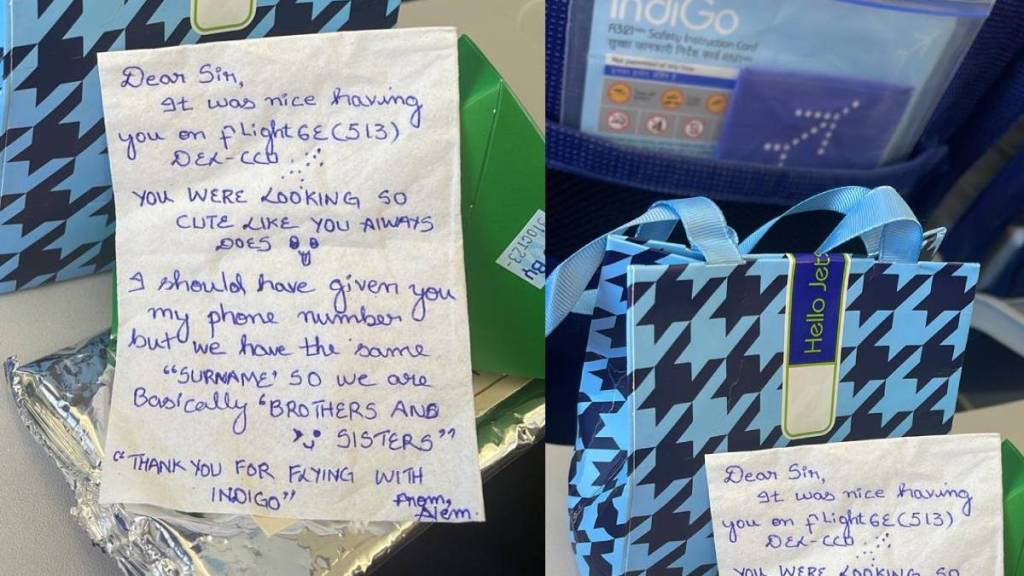 Dear Sir,
It was nice having
you on flight 6E(513)
DEL-CCU
YOU WERE LOOKING SO
CUTE LIKE YOU ALWAYS
DOES
I should have given you
my phone number
but we have the same
"SURNAME' SO we are
Basically 'BROTHERS AND
SISTERS"
"THANK YOU FOR FLYING WITH
INDIGO"
From,
IndiGo
Safety Instruction Card
Hello
Dear Sir,
It was nice having
you on flight 6E(513)
DEL-CCU
YOU WERE LOOKING SO